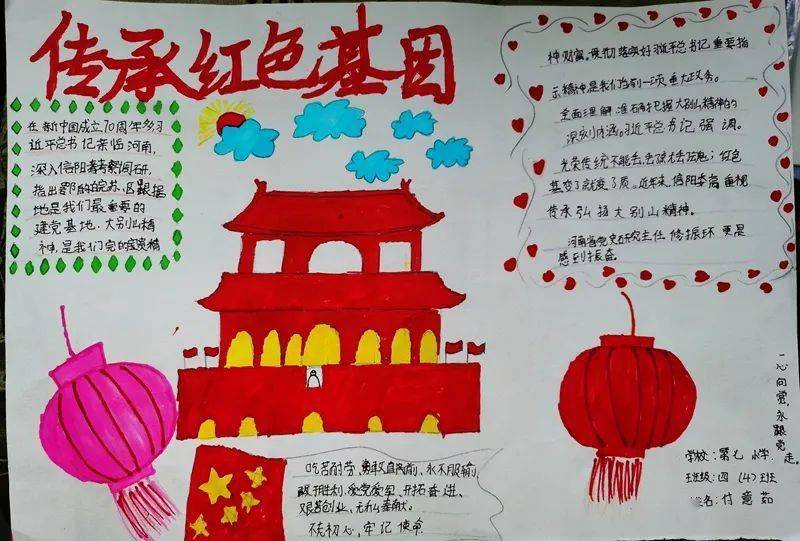 传承红色基因
在新中国成立70周年之际习
近平总书记亲临河南,
深入信阳考察调研,
指出鄂豫皖苏区根据
地是我们党重要的
建党基地,大别山精
神,是我们党的宝贵精
神财富,贯彻落实好习近平总书记重要指
示精神是我们当前一项重大政务。
全面理解准确把握大别山精神的
深刻内涵。习近平总书记强调。
光荣传统不能丢丢了就丢了魂;红色
基变了就变了质。近年来,信阳市委高重视
传承弘扬大别山精神。
河南省党史研究主任修振环更是
感到振奋。
吃苦耐劳、勇往直前、永不服输,
敢于胜利、爱党爱军、开拓奋进、
艰苦创业、无私奉献。
不忘初心,牢记使命
一心向党,永跟党走。
学校:第七小学
班级:四(4)班
姓名:付意茹